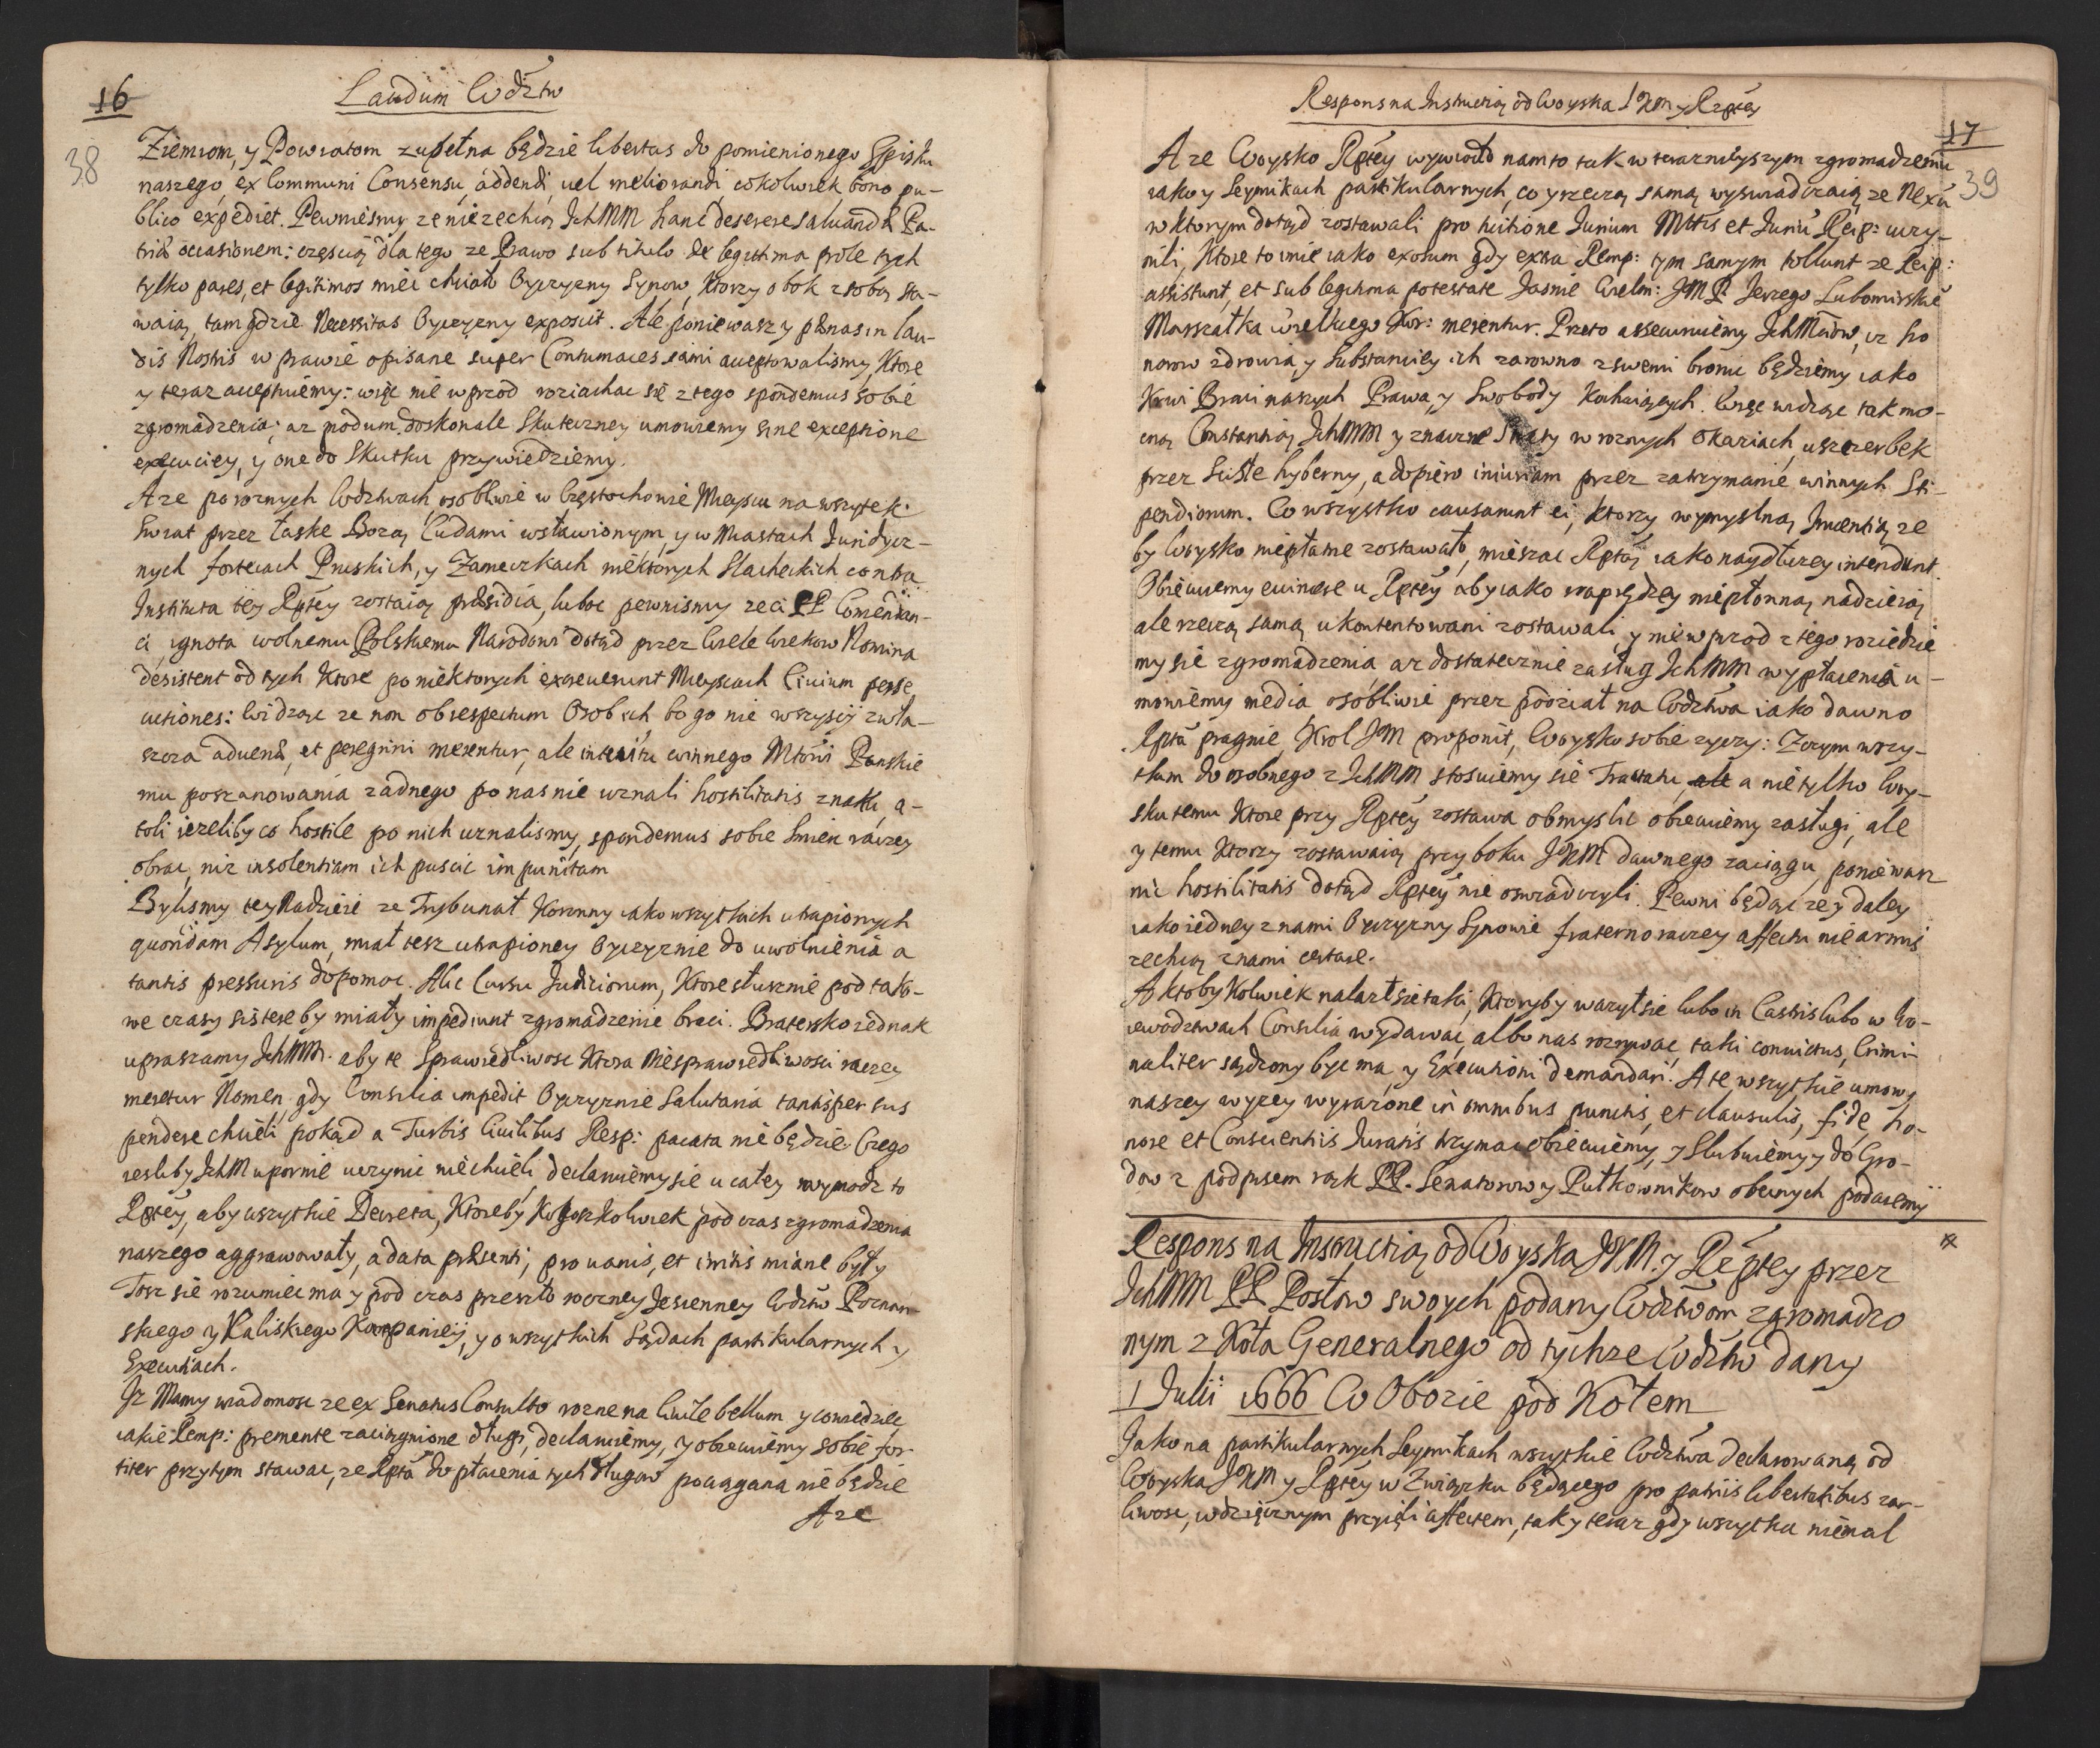 16
38
Laudum Wdztw
Ziemiom, y Powiatom zupełna będzie libertas do pomienionego Spisku
naszego, ex Communi Consensu addendi, uel meliorandi cokolwiek bono pu-
blico expediet. Pewniesmy ze niezechcą IchMM hanc deserere saluandæ Pa-
triæ occasionem: częscią dla tego ze Prawo sub titulo de legitima prole tych
tylko pares, et legitimos miec chciało Oyczyzny Synow, Ktorzy obok z sobą sta-
waią, tam gdzie Necessitas Oyczyzny exposcit. Ale poniewasz y pænas in lau-
dis Nostris w prawie opisane super Contumaces sami acceptowalismy, Ktore
y teraz acceptuiemy: więc nie wprzod roziachac się z tego spondemus sobie
zgromadzenia; az modum doskonale Skuteczney umowiemy sine exceptione
execuciey, y one do Skutku przywiedziemy.
A ze po roznych Wdztwach osobliwie w Częstochowie Mieyscu na wszytek
Swiat przez Łaske Bozą Cudami wsławionym, y w Miastach Juridycz-
nych fortecach Pruskich, y Zameczkach niektorych Slacheckich contra
Instituta tey Rptey zostaią præsidia, luboc pewnismy ze ci PP Comendan-
ci, ignota wolnemu Polskiemu Narodowi dotąd przez Wiele Wiekow Nomina
desistent od tych Ktore po niektorych exercuerunt Mieyscach Ciuium perse
cutiones: Widząc ze non ob respectum Osob ich bo go nie wszyscy zwła-
szcza aduenæ, et peregrini merentur, ale intuitu winnego Mtowi Panskie
mu poszanowania zadnego po nas nie uznali hostilitatis znaku, a-
toli iezeliby co hostile po nich uznalismy, spondemus sobie Smierc raczey
obrac, niz insolentiam ich puscic impunitam
Bylismy tey Nadzieie ze Trybunał Koronny iako wszytkich utrapionych
quondam Asylum, miał tesz utrapioney Oyczyznie do uwolnienia a
tantis pressuris dopomoc. Alic Cursu Judiciorum, Ktore słusznie pod tako-
we czasy sistere by miały impediunt zgromadzenie braci. Bratersko iednak
upraszamy IchMM. aby te Sprawiedliwosc Ktora Niesprawiedliwosci raczey
meretur Nomen gdy Consilia impedit Oyczyznie Salutaria tantisper sus
pendere chcieli pokąd a Turbis Ciuilibus Resp: pacata nie będzie. Czego
iesliby IchM upornie uczynic niechcieli, declaruiemy sie u całey wymodz to
Rptey, aby wszytkie Decreta, Ktoreby Kogoszkolwiek pod czas zgromadzenia
naszego aggrawowały, a data præsenti, pro uanis, et irritis miane były
Tosz sie rozumiec ma y pod czas przeszło roczney Jesienney Wdztw Poznan-
skiego y Kaliskiego Kompaniey, y o wszytkich Sądach partikularnych y
Executiach.
Iz Mamy wiadomosc ze ex Senatus Consulto rozne na Ciuile bellum y cowiedziec
iakie Remp: premente zaciągnione długi, declaruiemy, y obiecuiemy sobie for-
titer przytym stawac, ze Rpta do płacenia tych długow pociągana nie będzie
A ze
Respons na Instructią od Woyska IKM y Rzptey
17
39
A ze Woysko Rptey wywiodło nam to tak w teraznieyszym zgromadzeniu
iako y Seymikach partikularnych, co y rzeczą samą wyswiadczaią, ze Nexu
w Ktorym dotąd zostawali pro tuitione Jurium Mttis et Juriu Reip: uczy-
nili, Ktore to imie iako exosum gdy extra Remp: tym samym tollunt ze Reip:
assistunt, et sub legitima potestate Jasnie Wielm: JMP. Jerzego Lubomirskie
Marszałka wielkiego Kor: merentur. Przeto assecuruiemy IchMciow, iz ho
norow zdrowia, y Substanciey ich zarowno z swemi bronic będziemy iako
Krwi Braci naszych Prawa, y Swobody Kochaiących. Więc widząc tak mo-
cną Constantią IchMM y znaczne Straty w roznych okaziach, uszczerbek
przez Suste hyberny, a dopiero iniuriam przez zatrzymanie winnych Sti-
pendiorum. Co wszystko causarunt ci, Ktorzy wymyslną Inuentią ze
by Woysko niepłatne zostawało, mieszac Rptą iako naydłuzey intendunt.
Obiecuiemy euincere u Rptey aby iako naprędzey niepłonną nadzieią
ale rzeczą samą ukontentowani zostawali, y nie wprzod z tego roziedzie
my sie zgromadzenia az dostatecznie zasług IchMM wypłacenia u-
mowiemy media osobliwie przez podział na Wdztwa iako dawno
Rpta pragnie, Krol JM proponit, Woysko sobie zyczy: Zczym wszy-
tkim do osobnego z IchMM stosuiemy sie Tractatu, ale a nie tylko Woy-
sku temu Ktore przy Rptey zostawa obmyslic obiecuiemy zasługi, ale
y temu Ktorzy zostawaią przy boku JKM dawnego zaciągu, poniewasz
nic hostilitatis dotąd Rptey nie oswiadczyli. Pewni będąc ze y daley
iako iedney z nami Oyczyzny Synowie fraterno raczey affectu nie armis
zechcą z nami certare.
A ktoby Kolwiek nalazł sie taki, Ktoryby wazył sie lubo in Castris lubo w Wo-
iewodztwach Consilia wydawac, albo nas rozrywac, taki conuictus, Crimi-
naliter sądzony byc ma, y Executioni demandari. A te wszytkie umowy
naszey wyzey wyrazone in omnibus punctis, et clausulis, fide ho-
nore et Conscientiis Juratis trzymac obiecuiemy, y Slubuiemy y do Gro-
dow z podpisem rąk PP. Senatorow y Pułkownikow obecnych podaiemy
Respons na Instructią od Woyska JKM. y Rzeptey przez
IchMM PP Posłow swoych podany Wdztwom zgromadzo
nym z Koła Generalnego od tychze Wdztw dany
1 Julii 1666 W Obozie pod Kołem
Jako na partikularnych Seymikach wszytkie Wdztwa declarowaną od
Woyska JKM y Rptey w Związku będącego pro patriis libertatibus zar-
liwosc, wdzięcznym przyięli affectem, tak y teraz gdy wszytku niemal